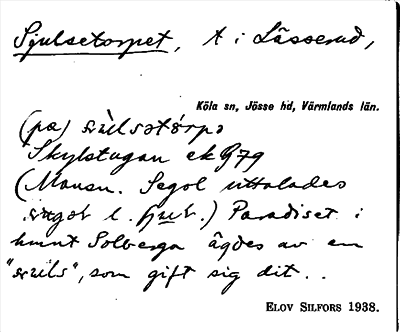 Sjulsetorpet, t i Lässerud,
Köla sn, Jösse hd, Värmlands län.
(på)
Skylstugan ek G79
(Mansn. Segol uttalades
l.) Paradiset i
hmnt Solberga ägdes av en
", som gift sig dit..
ELOV SILFORS 1938.